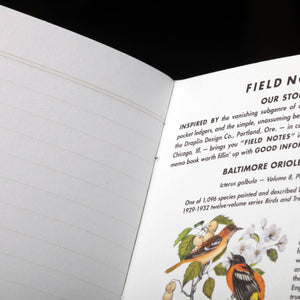 FIELD NO
OUR STO
INSPIRED BY the vanishing subgenre of
pocket ledgers, and the simple, unassuming be
the Draplin Design Co., Portland, Ore. — in c
Chicago, Ill. — brings you "FIELD NOTES" i
memo book worth fillin' up with GOOD INFOR
BALTIMORE ORIOL
Icterus galbula — Volume 8, P
One of 1,096 species painted and described
1929-1932 twelve-volume series Birds and Tre
of N
Eng
and